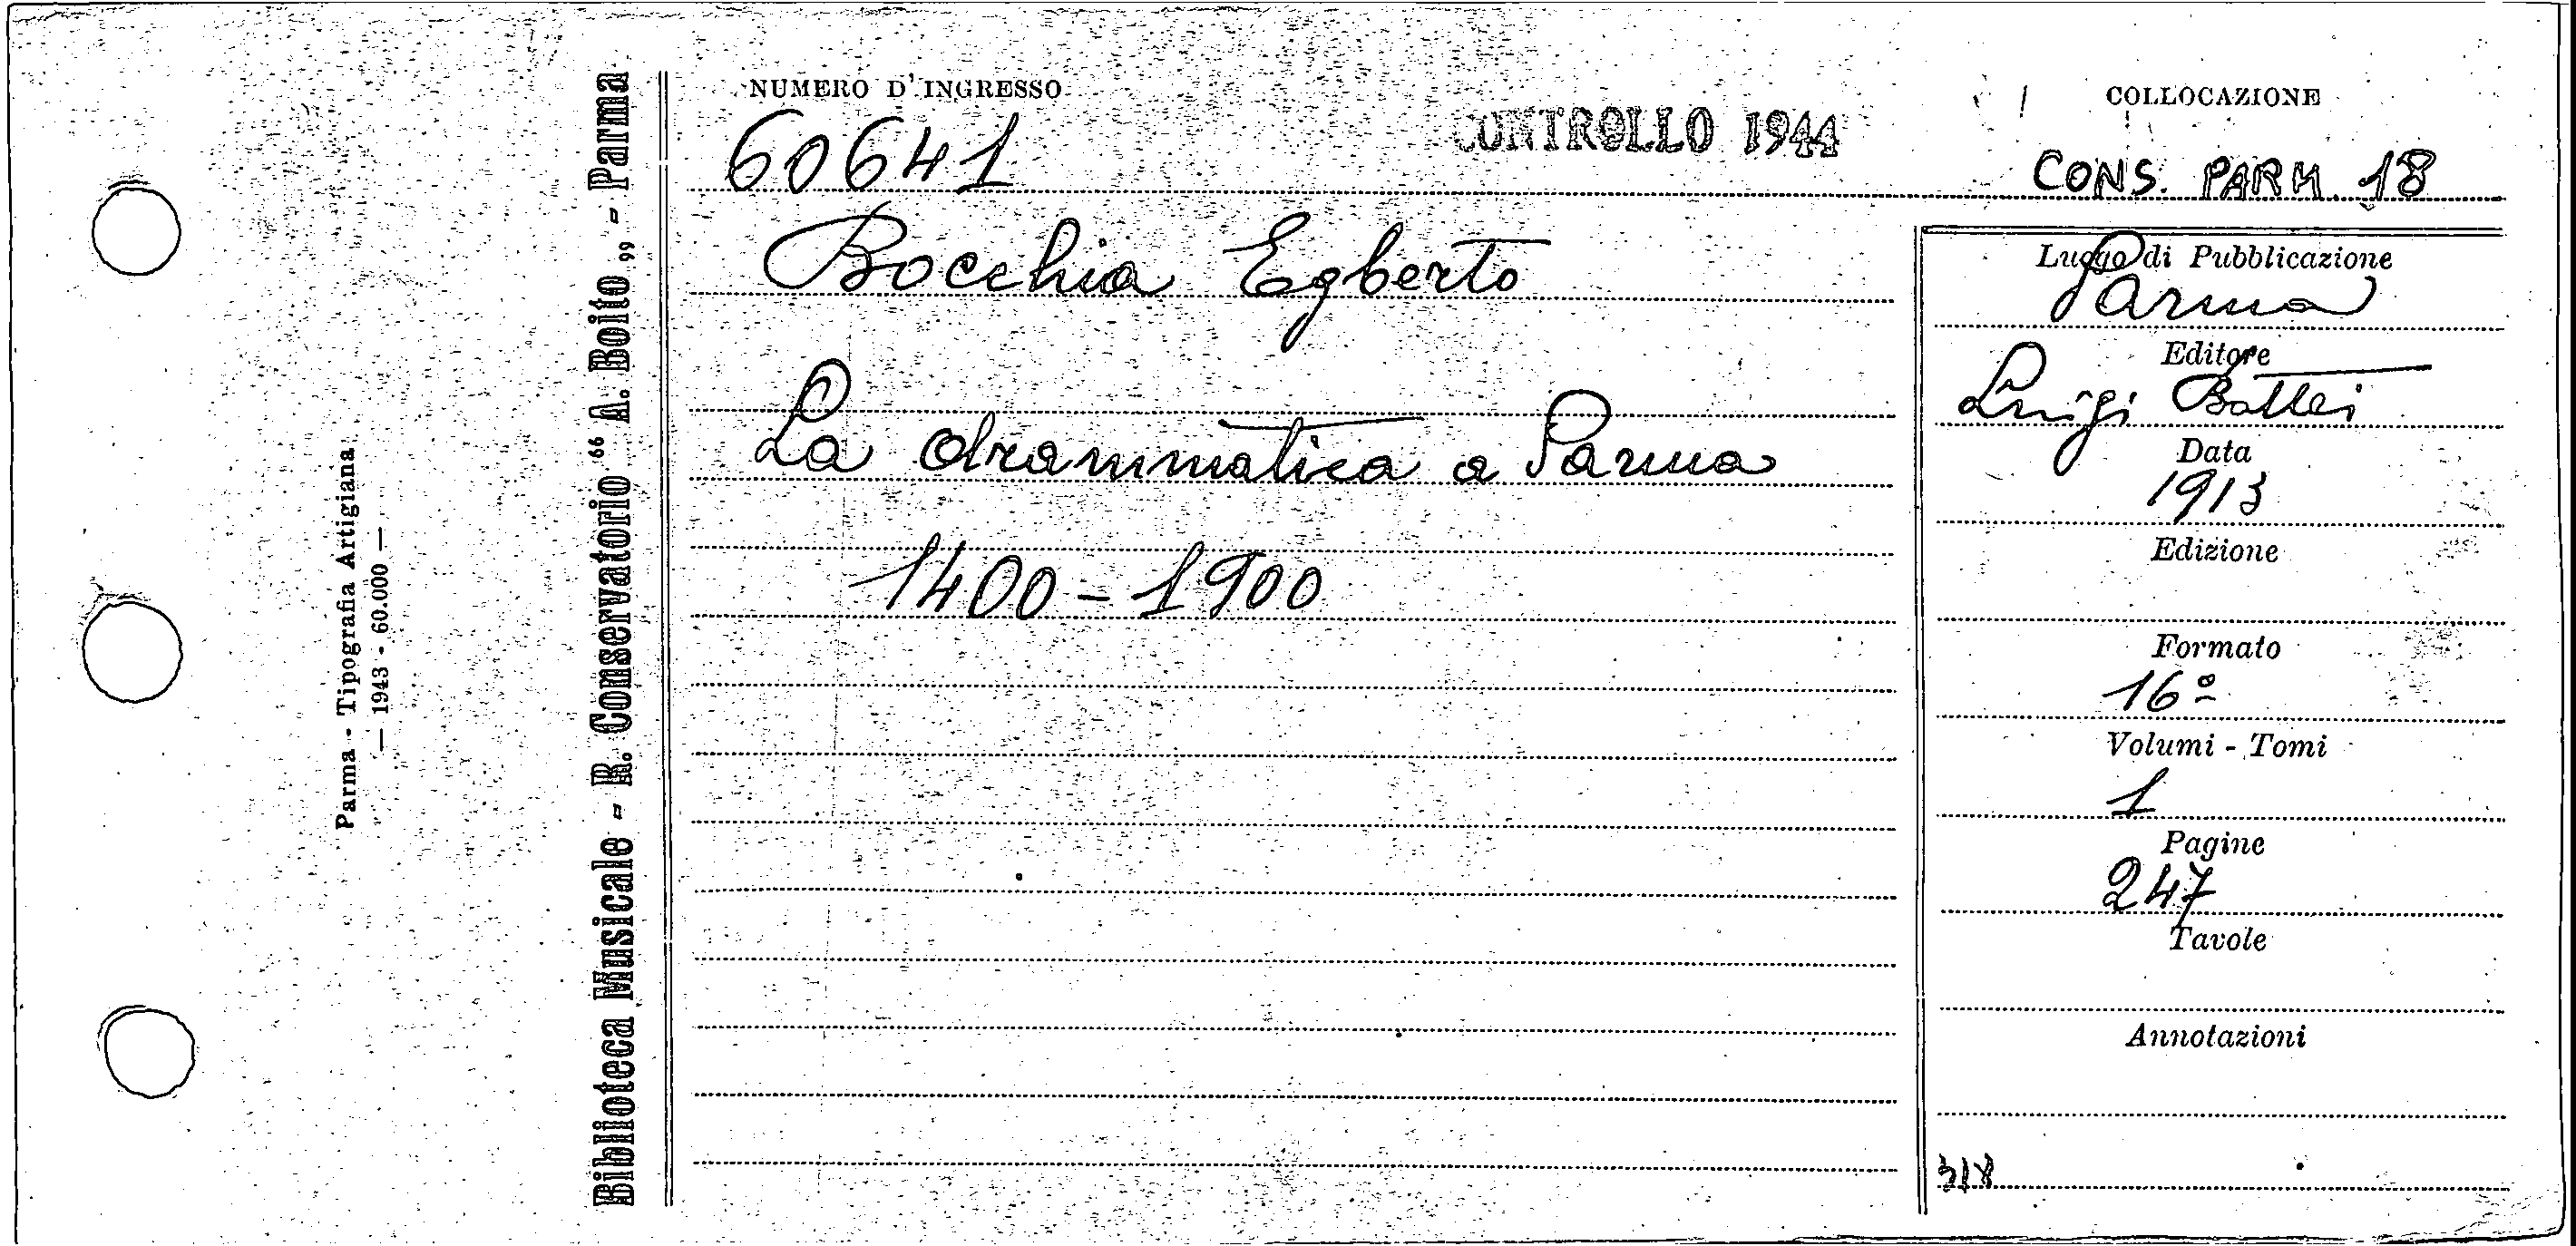 Parma - Tipografia Artigiana
— 1943 - 60.000 —
Biblioteca Musicale - R. Conservatorio “ A. Boito „ - Parma
NUMERO D'INGRESSO
60641
CONTROLLO 1944
COLLOCAZIONE
CONS. PARM. 18
Bocchia Egberto
La drammatica a Parma
1400 - 1900
Luogo di Pubblicazione
Parma
Editore
Luigi Battei
Data
1913
Edizione
Formato
16º
Volumi - Tomi
1
Pagine
247
Tavole
Annotazioni